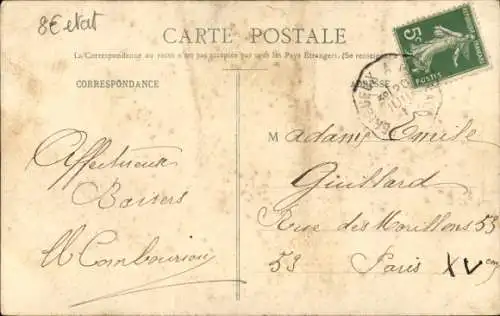 8E etat
CARTE POSTALE
La Correspondance au recto n'est pas acceptée par tous les Pays Étrangers. (Se renseign
CORRESPONDANCE
5c
POSTES
Madame Emile
Guillard
Rue des Morillons 53
53 Paris XV em
Affectueux
Baisers